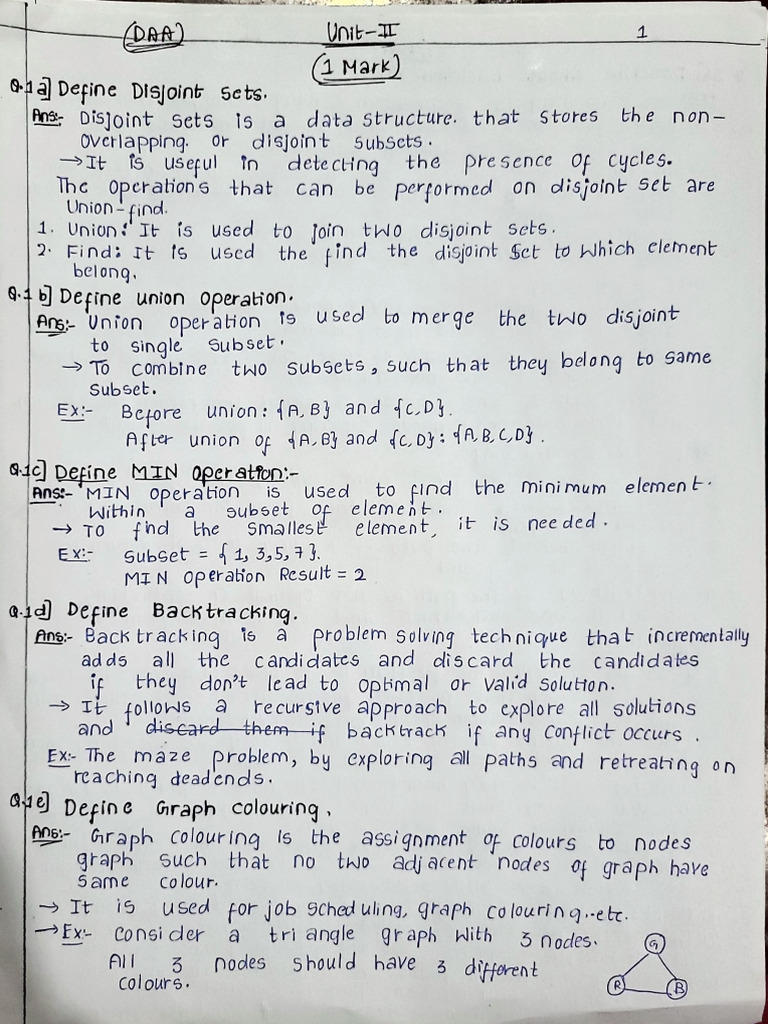 (DAA) Unit-II 1
(1 Mark)
Q.1a] Define Disjoint sets.
Ans:- Disjoint sets is a data structure. that stores the non-
overlapping. or disjoint subsets.
→ It is useful in detecting the presence of cycles.
The operations that can be performed on disjoint set are
Union-find.
1. Union: It is used to join two disjoint sets.
2. Find: It is used the find the disjoint set to which element
belong.
Q.1b] Define union operation.
Ans:- Union operation is used to merge the two disjoint
to single subset.
→ To combine two subsets, such that they belong to same
subset.
Ex:- Before union: {A,B} and {C,D}.
After union of {A,B} and {C,D}: {A,B,C,D}.
Q.1c] Define MIN operation:-
Ans:- MIN operation is used to find the minimum element.
Within a subset of element.
→ To find the smallest element, it is needed.
Ex:- subset = {1,3,5,7}.
MIN operation Result = 2
Q.1d] Define Backtracking.
Ans:- Backtracking is a problem solving technique that incrementally
adds all the candidates and discard the candidates
if they don't lead to optimal or valid solution.
→ It follows a recursive approach to explore all solutions
and discard them if backtrack if any conflict occurs.
Ex:- The maze problem, by exploring all paths and retreating on
reaching deadends.
Q.1e] Define Graph colouring.
Ans:- Graph colouring is the assignment of colours to nodes
graph such that no two adjacent nodes of graph have
same colour.
→ It is used for job scheduling, graph colouring..etc.
→ Ex:- consider a triangle graph with 3 nodes.
All 3 nodes should have 3 different
colours.
G
R B